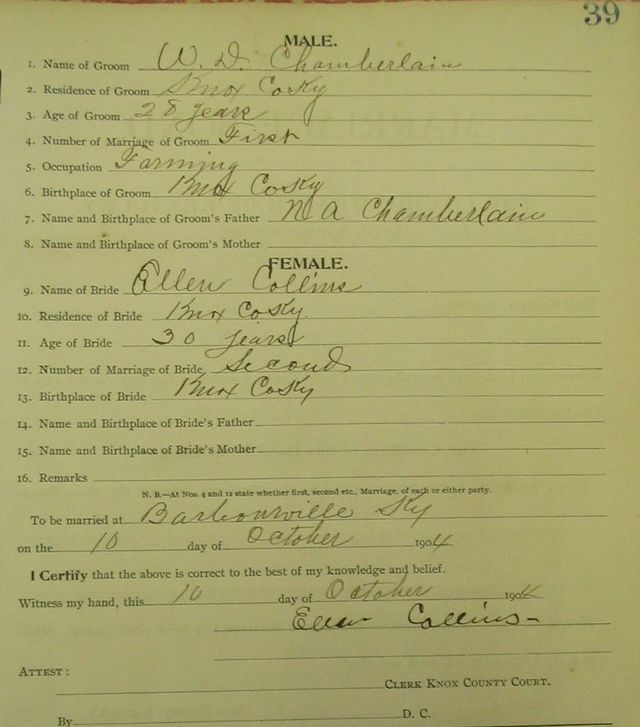 39
MALE.
1. Name of Groom W. D. Chamberlain
2. Residence of Groom Knox Co Ky
3. Age of Groom 28 years
4. Number of Marriage of Groom First
5. Occupation Farming
6. Birthplace of Groom Knox Co Ky
7. Name and Birthplace of Groom's Father N A Chamberlain
8. Name and Birthplace of Groom's Mother
FEMALE.
9. Name of Bride Ellen Collins
10. Residence of Bride Knox Co Ky.
11. Age of Bride 30 years
12. Number of Marriage of Bride Second
13. Birthplace of Bride Knox Co Ky
14. Name and Birthplace of Bride's Father
15. Name and Birthplace of Bride's Mother
16. Remarks
N. B.—At Nos. 4 and 12 state whether first, second etc., Marriage, of each or either party.
To be married at Barbourville Ky
on the 10 day of October 1904
I Certify that the above is correct to the best of my knowledge and belief.
Witness my hand, this 10 day of October 1904
Ellen Collins
ATTEST:
CLERK KNOX COUNTY COURT.
By D. C.